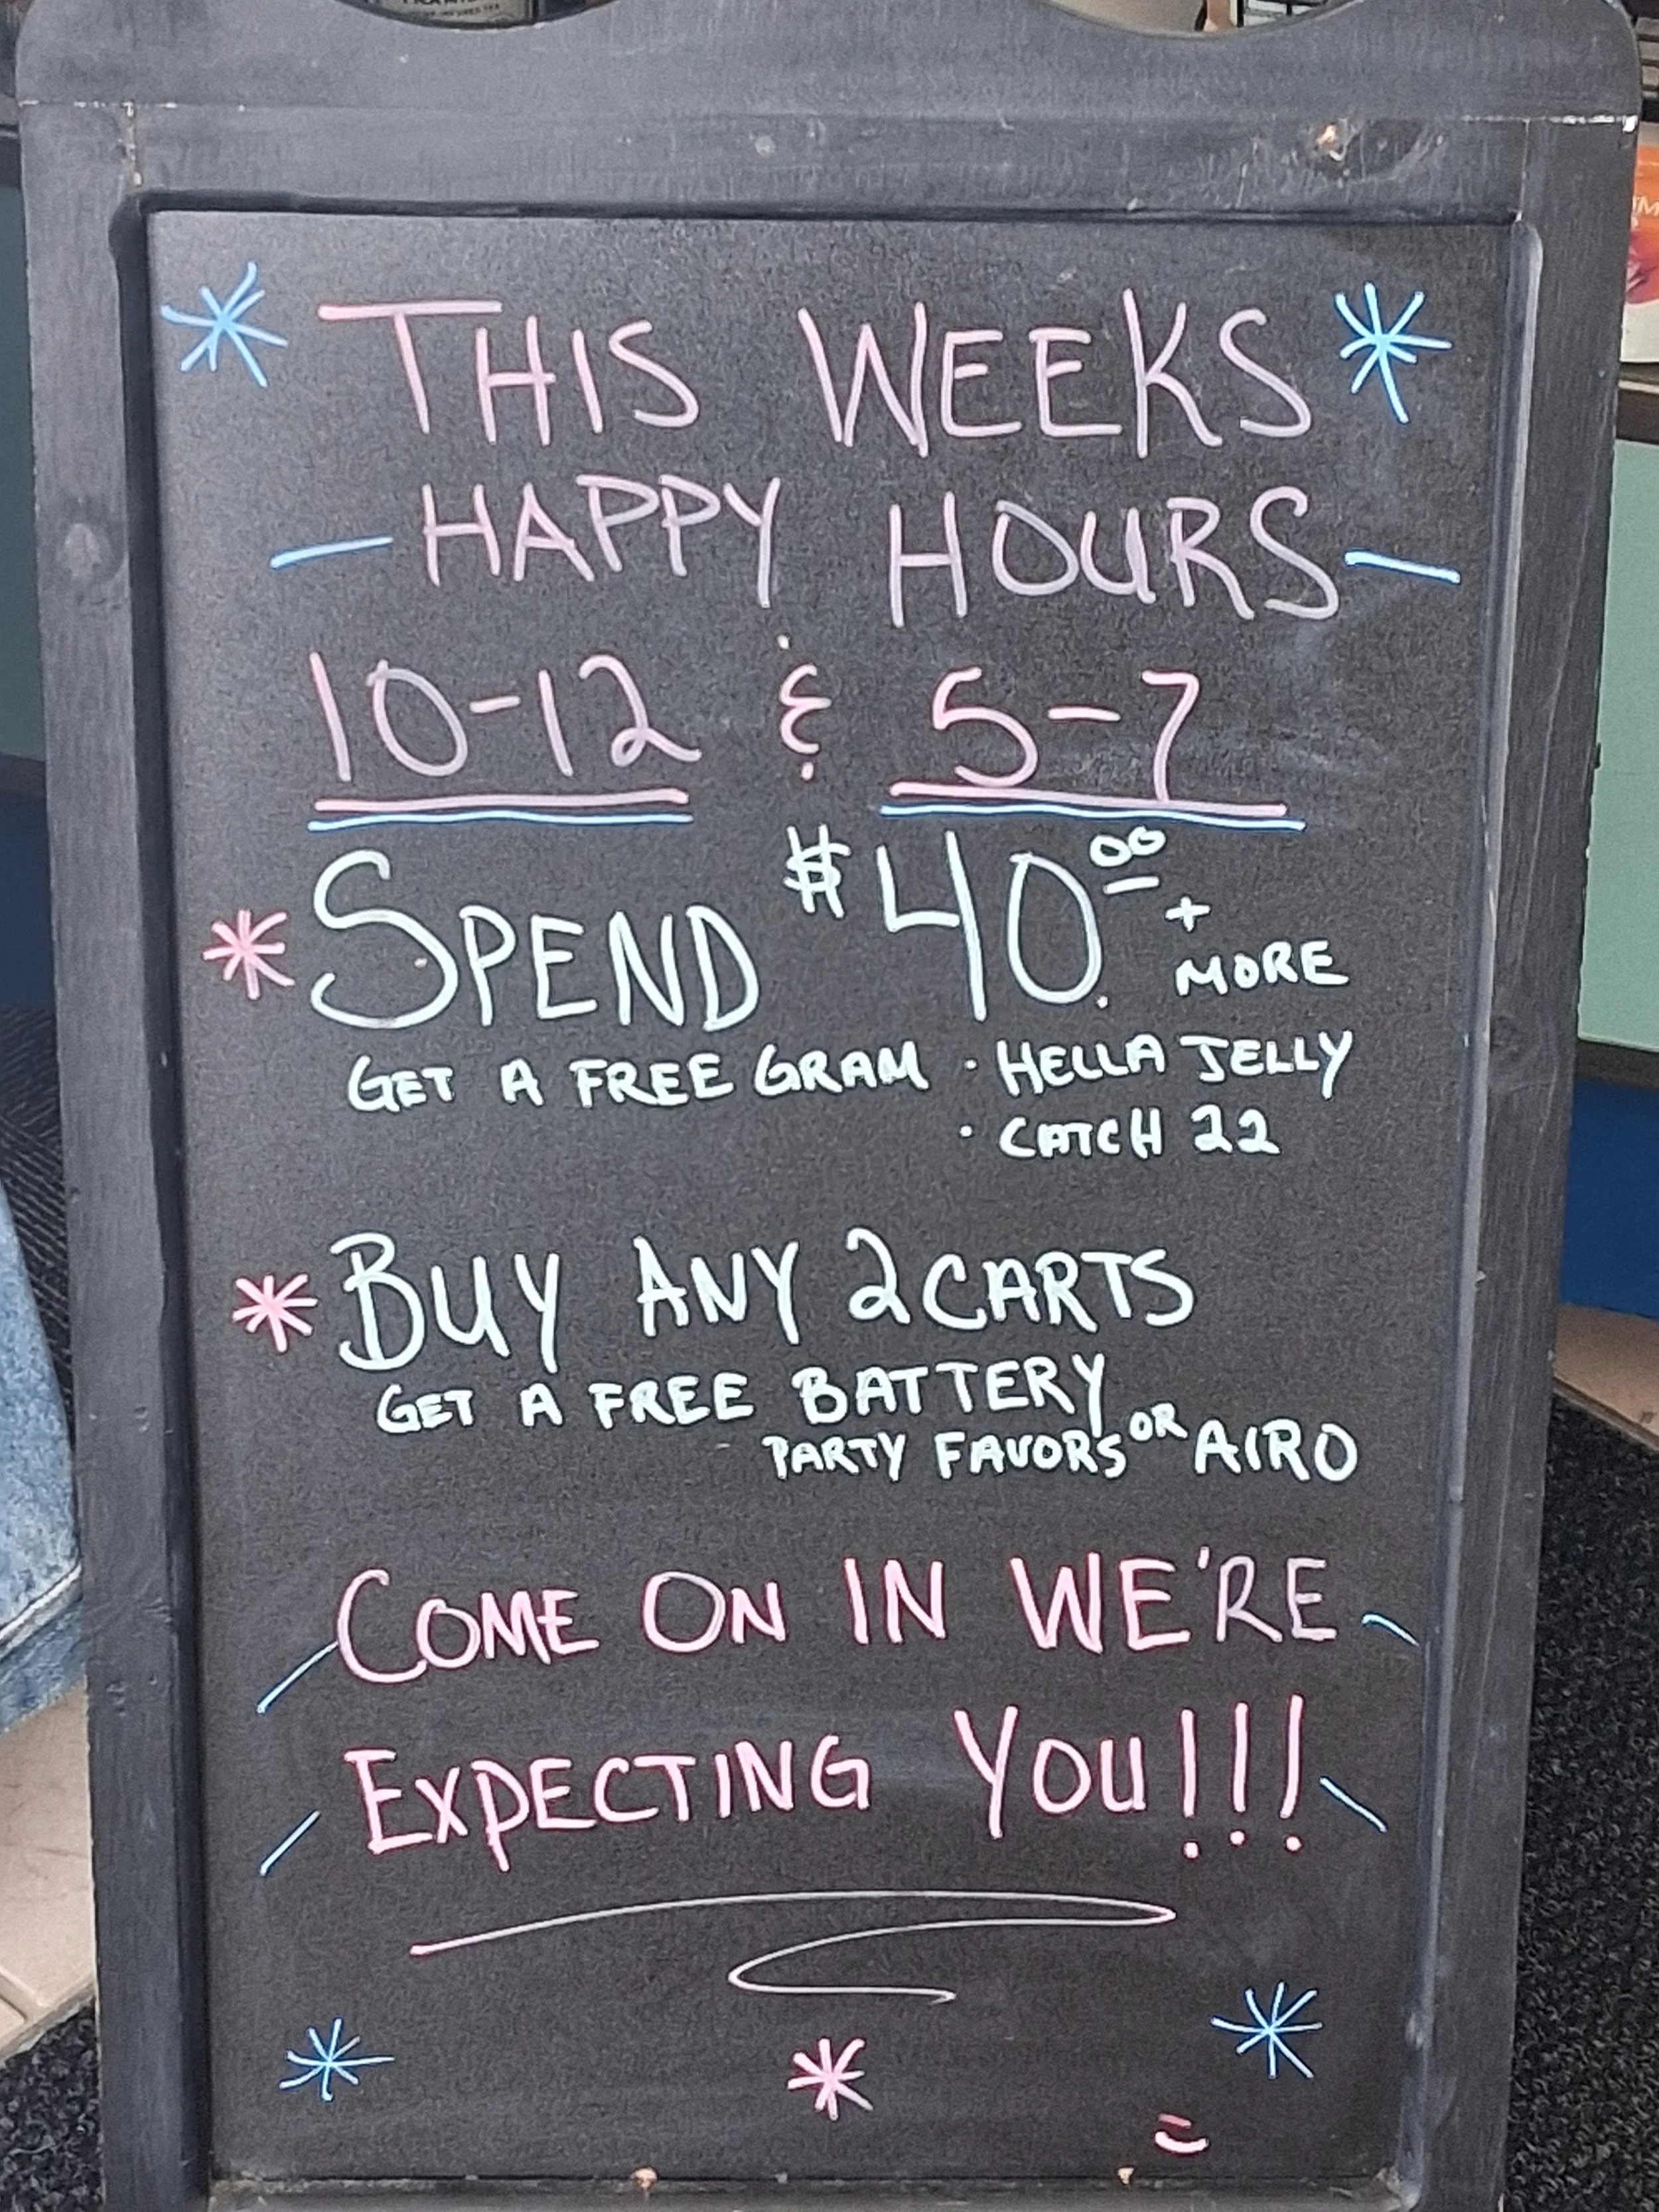 THIS WEEKS
HAPPY HOURS
10-12 & 5-7
SPEND $40.00 + MORE
GET A FREE GRAM · HELLA JELLY
· CATCH 22
BUY ANY 2 CARTS
GET A FREE BATTERY
PARTY FAVORS OR AIRO
COME ON IN WE'RE
EXPECTING YOU!!!